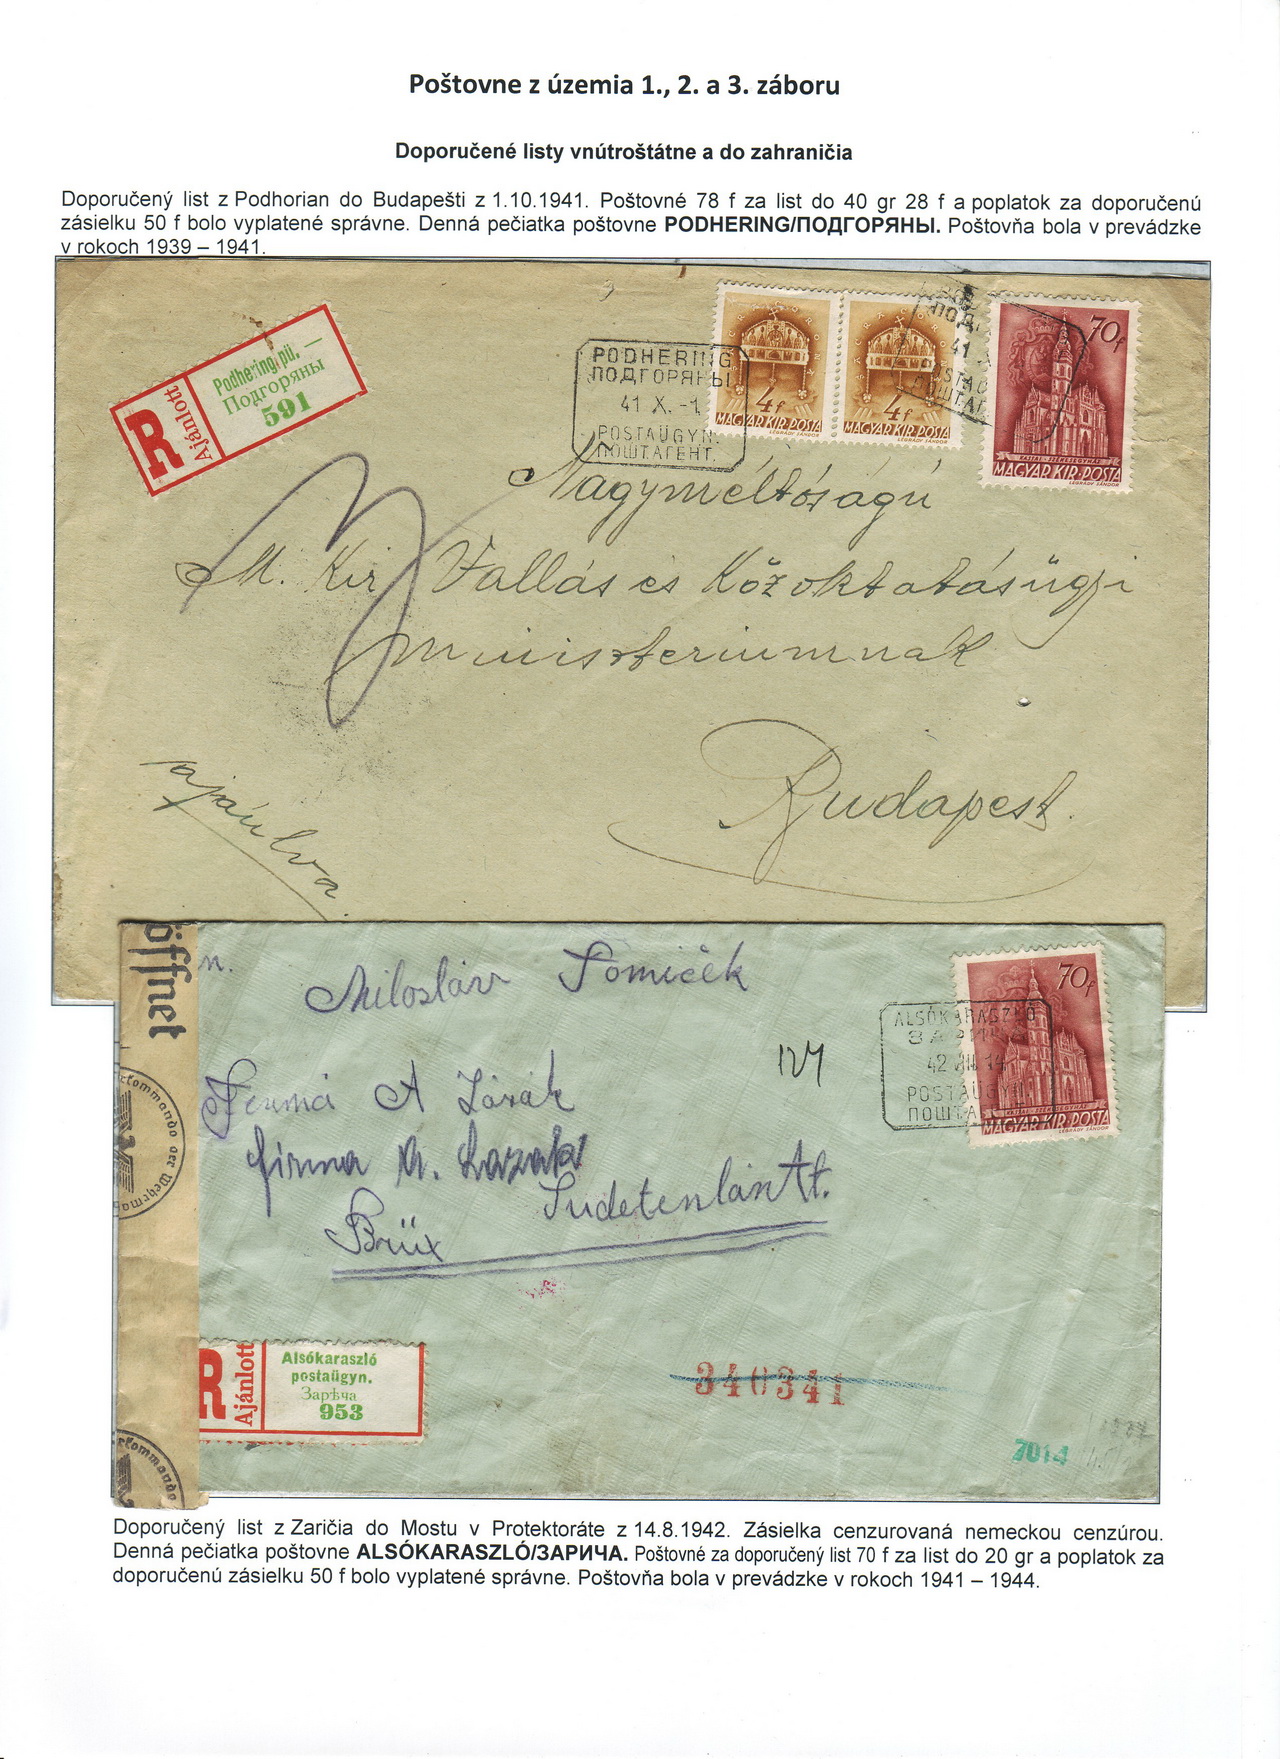 Poštovne z územia 1., 2. a 3. záboru
Doporučené listy vnútroštátne a do zahraničia
Doporučený list z Podhorian do Budapešti z 1.10.1941. Poštovné 78 f za list do 40 gr 28 f a poplatok za doporučenú
zásielku 50 f bolo vyplatené správne. Denná pečiatka poštovne PODHERING/ПОДГОРЯНЫ. Poštovňa bola v prevádzke
v rokoch 1939 – 1941.
R Ajánlott
Podhering pü. —
Подгоряны
591
PODHERING
ПОДГОРЯНЫ
41 X. -1.
POSTAÜGYN.
ПОШТ.АГЕНТ.
4f
MAGYAR KIR. POSTA
LÉGRÁDY SÁNDOR
4f
MAGYAR KIR. POSTA
LÉGRÁDY SÁNDOR
70f
KASSAI-SZÉKESEGYHÁZ
MAGYAR KIR. POSTA
LÉGRÁDY SÁNDOR
Nagyméltóságú
M. Kir Vallás és Közoktatásügyi
ministeriumnak
Budapest.
ajánlva
öffnet
n.
Miloslav Tomiček
124
70f
KASSAI-SZÉKESEGYHÁZ
MAGYAR KIR. POSTA
LÉGRÁDY SÁNDOR
ALSÓKARASZLÓ
42 VIII 14
POSTAÜGYN
ПОШТ.А
A
firma A. Lazak
Sudetenlant.
Brüx
R Ajánlott
Alsókaraszló
postaügyn.
Зарѣча
953
340341
7014
Doporučený list z Zaričia do Mostu v Protektoráte z 14.8.1942. Zásielka cenzurovaná nemeckou cenzúrou.
Denná pečiatka poštovne ALSÓKARASZLÓ/ЗАРИЧА. Poštovné za doporučený list 70 f za list do 20 gr a poplatok za
doporučenú zásielku 50 f bolo vyplatené správne. Poštovňa bola v prevádzke v rokoch 1941 – 1944.